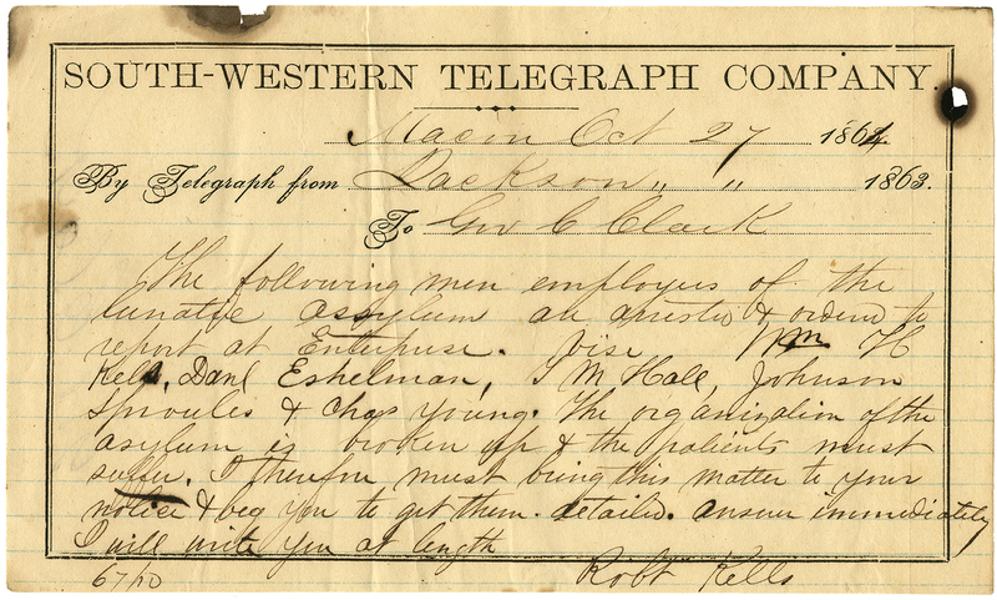 SOUTH-WESTERN TELEGRAPH COMPANY.
Macon Oct 27 1864.
By Telegraph from Jackson " " 1863.
To Gov C Clark
The following men employees of the
lunatic assylum are arrested & ordered to
report at Enterprise. vise Wm H
Kells, Danl Eshelman, J M Hall, Johnson
Sproules & Chas Young. The organization of the
asylum is broken up & the patients must
suffer. I therefore must bring this matter to your
notice & beg you to get them detailed. answer immediately
I will write you at length
67/10 Robt Kells